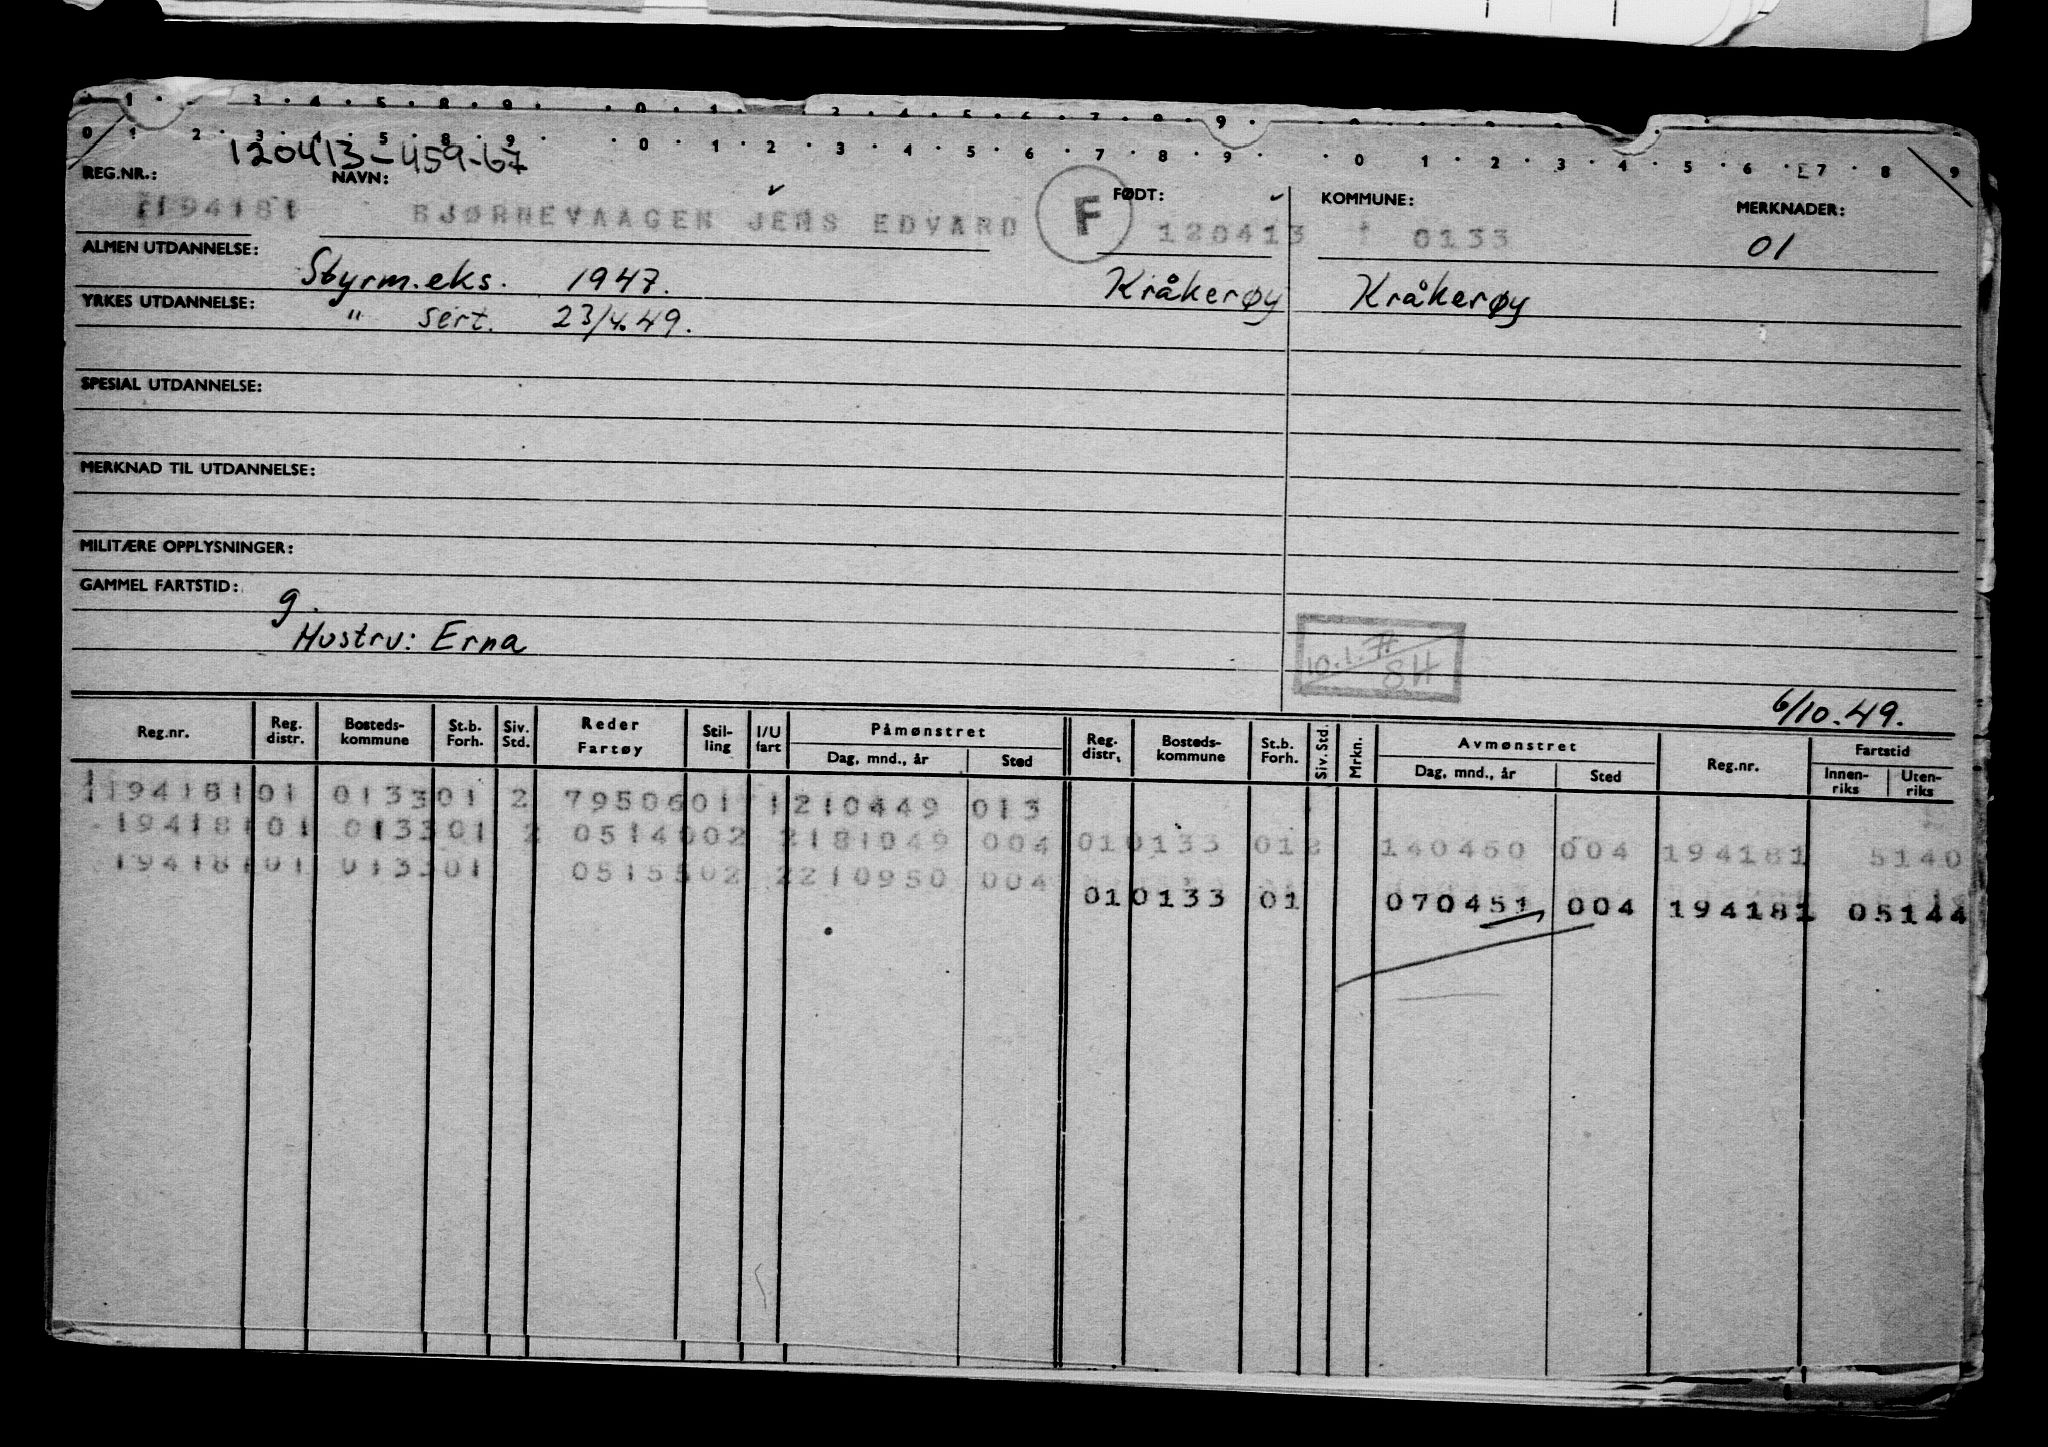 0 1 2 3 4 5 8 9 0 1 2 3 4 5 6 7 8 9 0 1 2 3 4 5 6 7 8 9
120413-459-67
REG.NR.: NAVN: FØDT: KOMMUNE: MERKNADER:
194181 BJØRNEVAAGEN JENS EDVARD F 120413 0133 01
ALMEN UTDANNELSE: Styrm.eks. 1947. Kråkerøy Kråkerøy
YRKES UTDANNELSE: " sert. 23/4.49.
SPESIAL UTDANNELSE:
MERKNAD TIL UTDANNELSE:
MILITÆRE OPPLYSNINGER:
GAMMEL FARTSTID: g.
Hustru: Erna
10.1.
6/10.49.
Reg.nr. Reg. distr. Bosteds-kommune St.b. Forh. Siv. Std. Reder Fartøy Stil-ling I/U fart Påmønstret Dag, mnd., år Sted Reg. distr. Bosteds-kommune St.b. Forh. Siv. Std. Mrkn. Avmønstret Dag, mnd., år Sted Reg.nr. Fartstid Innen-riks Uten-riks
194181 01 0133 01 2 79506 01 1 210449 013
194181 01 0133 01 2 05140 02 2 181049 004 01 0133 01 2 140450 004 194181 5140
194181 01 0133 01 05155 02 2 210950 004
01 0133 01 070451 004 194181 05144